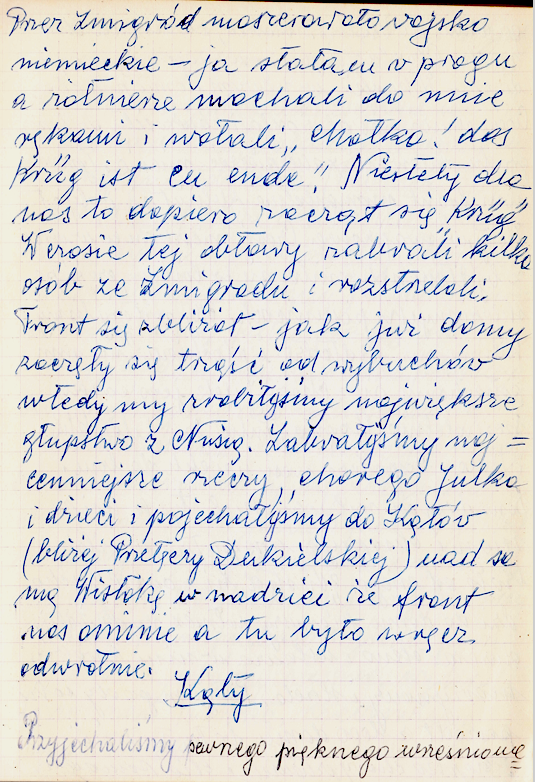 Przez Żmigród maszerowało wojsko
niemieckie – ja stałam w progu
a żołnierze machali do mnie
rękami i wołali „ chałka! das
Krüg ist cu ende". Niestety dla
nas to dopiero zaczął się „Krüg"
W czasie tej obławy zabrali kilka
osób ze Żmigrodu i rozstrzelali.
Front się zbliżał – jak już domy
zaczęły się trząść od wybuchów
wtedy my zrobiłyśmy największe
głupstwo z Nusią. Zabrałyśmy naj =
cenniejsze rzeczy, chorego Julka
i dzieci i pojechałyśmy do Kątów
(bliżej Przełęczy Dukielskiej) nad sa
mą Wisłokę w nadzieji że front
nas ominie a tu było wręcz
odwrotnie.
Kąty
Przyjechaliśmy pewnego pięknego wrześniowe